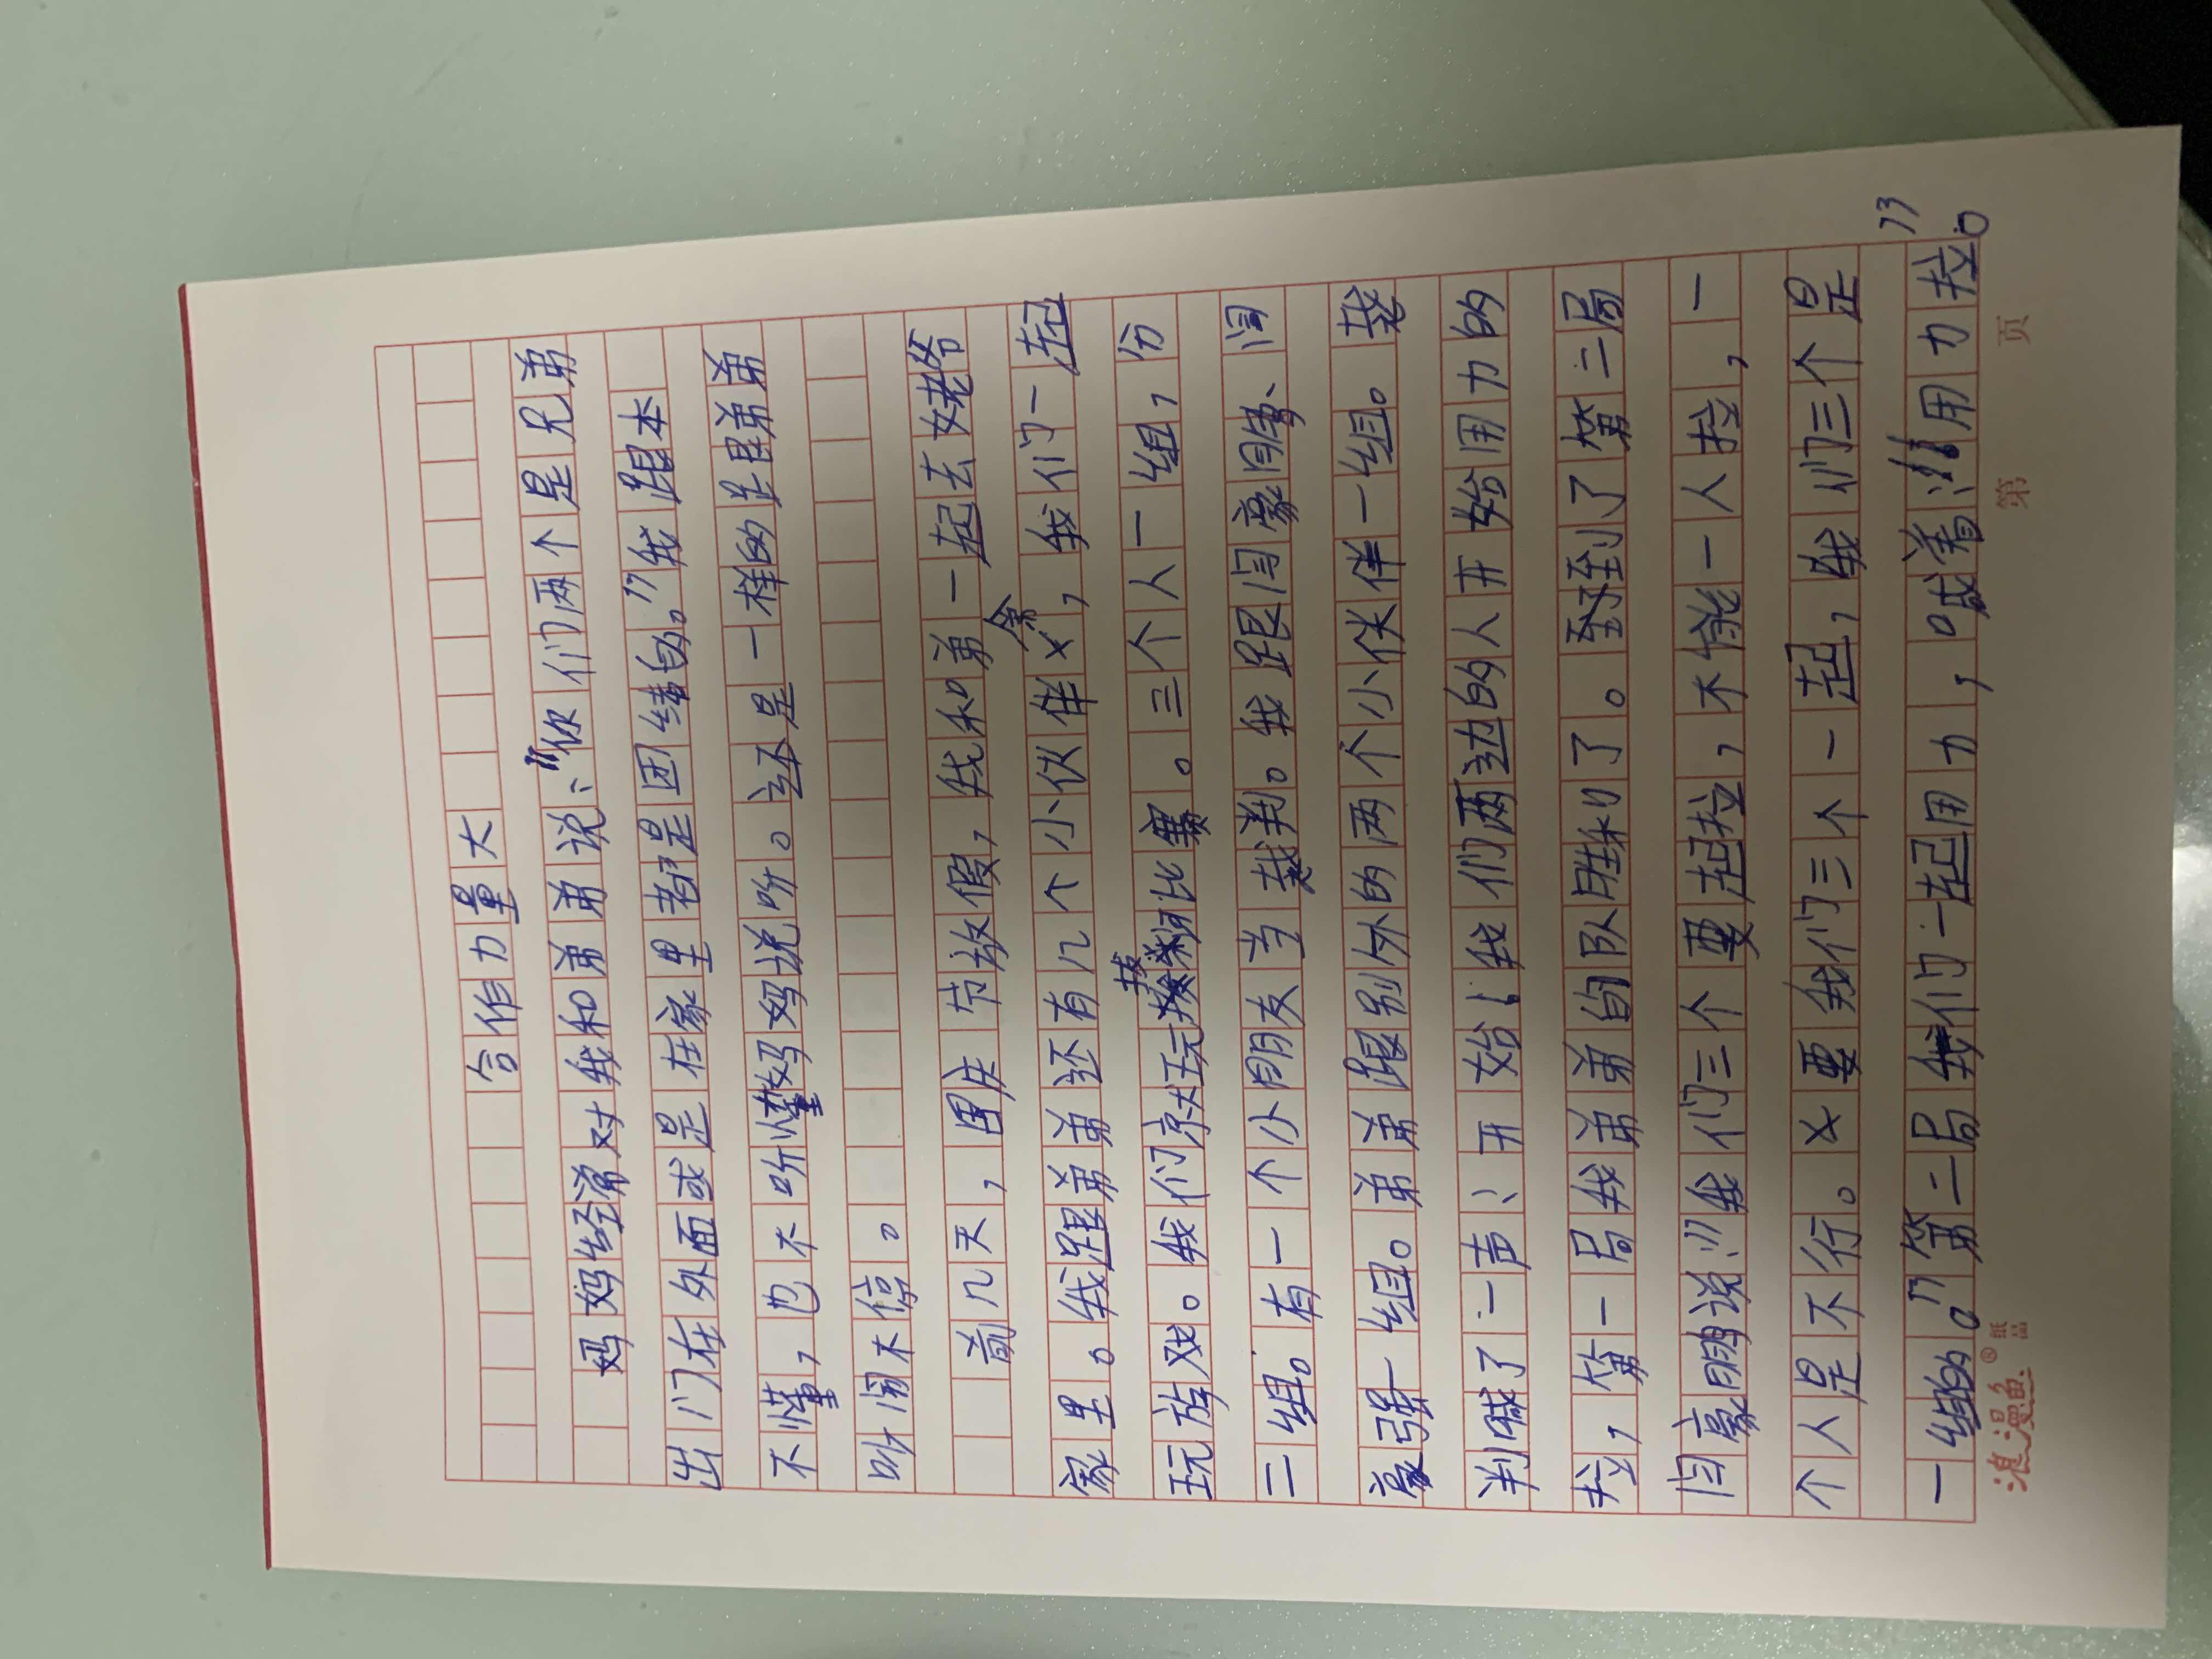 合作力量大
妈妈经常对我和弟弟说:“你们两个是兄弟
出门在外面或是在家里都是团结的。”我跟本
不懂,也不听懂妈妈说吩。还是一样的跟弟弟
吵闹不停。
前几天,国庆节放假,我和弟一起去姥爷
家里。我跟弟弟还有几个小伙伴余,我们一起
玩游戏。我们就玩拔河比赛。三个人一组,份
二组。有一个小朋友当裁判。我跟闫豪鹏、闫
豪强一组。弟弟跟别外的两个小伙伴一组。裁
判喊了一声:开始!我们两边的人开始用力的
拉,第一局我弟弟的队胜利了。到了第二局
闫豪鹏说:“我们三个要起拉,不能一人拉,一
个人是不行。又要我们三个一起,我们三个是
一组的。”第二局我们一起用力,喊着:“用力拉。”
浪漫鱼®纸品
第 页